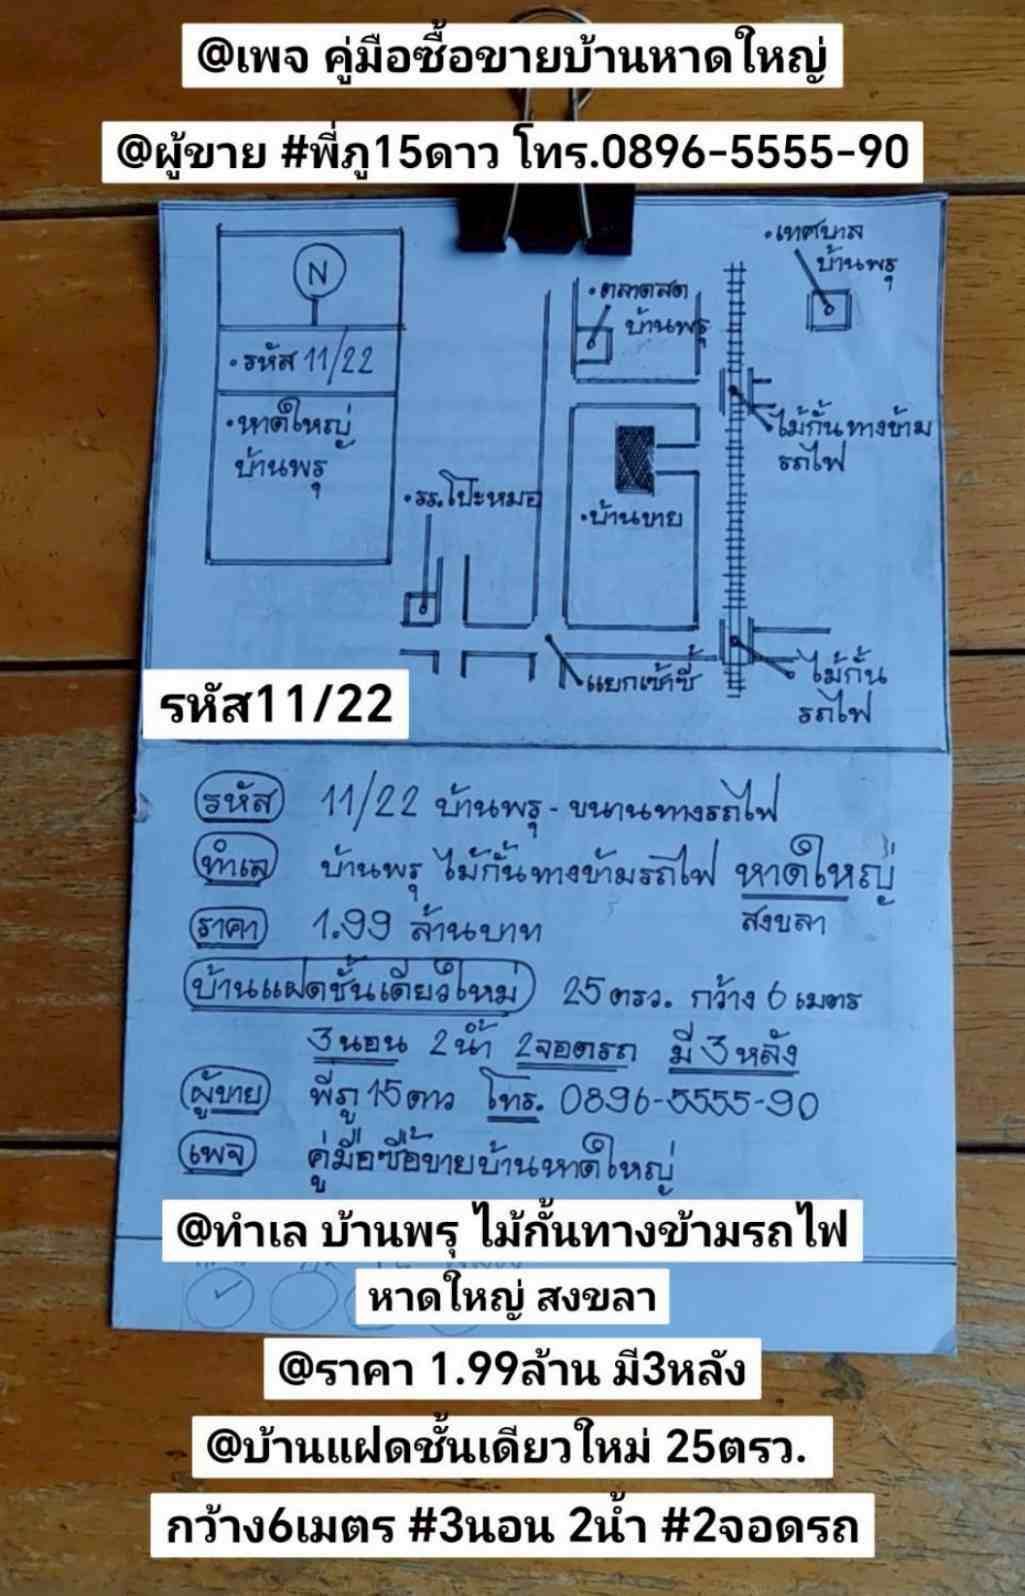 @เพจ คู่มือซื้อขายบ้านหาดใหญ่
@ผู้ขาย #พี่ภู15ดาว โทร.0896-5555-90
N
•รหัส 11/22
•หาดใหญ่
บ้านพรุ
•ตลาดสด
บ้านพรุ
•เทศบาล
บ้านพรุ
ไม้กั้นทางข้าม
รถไฟ
•รร.โป๊ะหมอ
•บ้านขาย
•แยกเซ้าซี้
ไม้กั้น
รถไฟ
รหัส11/22
รหัส 11/22 บ้านพรุ - ขนานทางรถไฟ
ทำเล บ้านพรุ ไม้กั้นทางข้ามรถไฟ หาดใหญ่
สงขลา
ราคา 1.99 ล้านบาท
บ้านแฝดชั้นเดียวใหม่ 25 ตรว. กว้าง 6 เมตร
3 นอน 2 น้ำ 2 จอดรถ มี 3 หลัง
ผู้ขาย พี่ภู 15 ดาว โทร. 0896-5555-90
เพจ คู่มือซื้อขายบ้านหาดใหญ่
@ทำเล บ้านพรุ ไม้กั้นทางข้ามรถไฟ
หาดใหญ่ สงขลา
@ราคา 1.99ล้าน มี3หลัง
@บ้านแฝดชั้นเดียวใหม่ 25ตรว.
กว้าง6เมตร #3นอน 2น้ำ #2จอดรถ